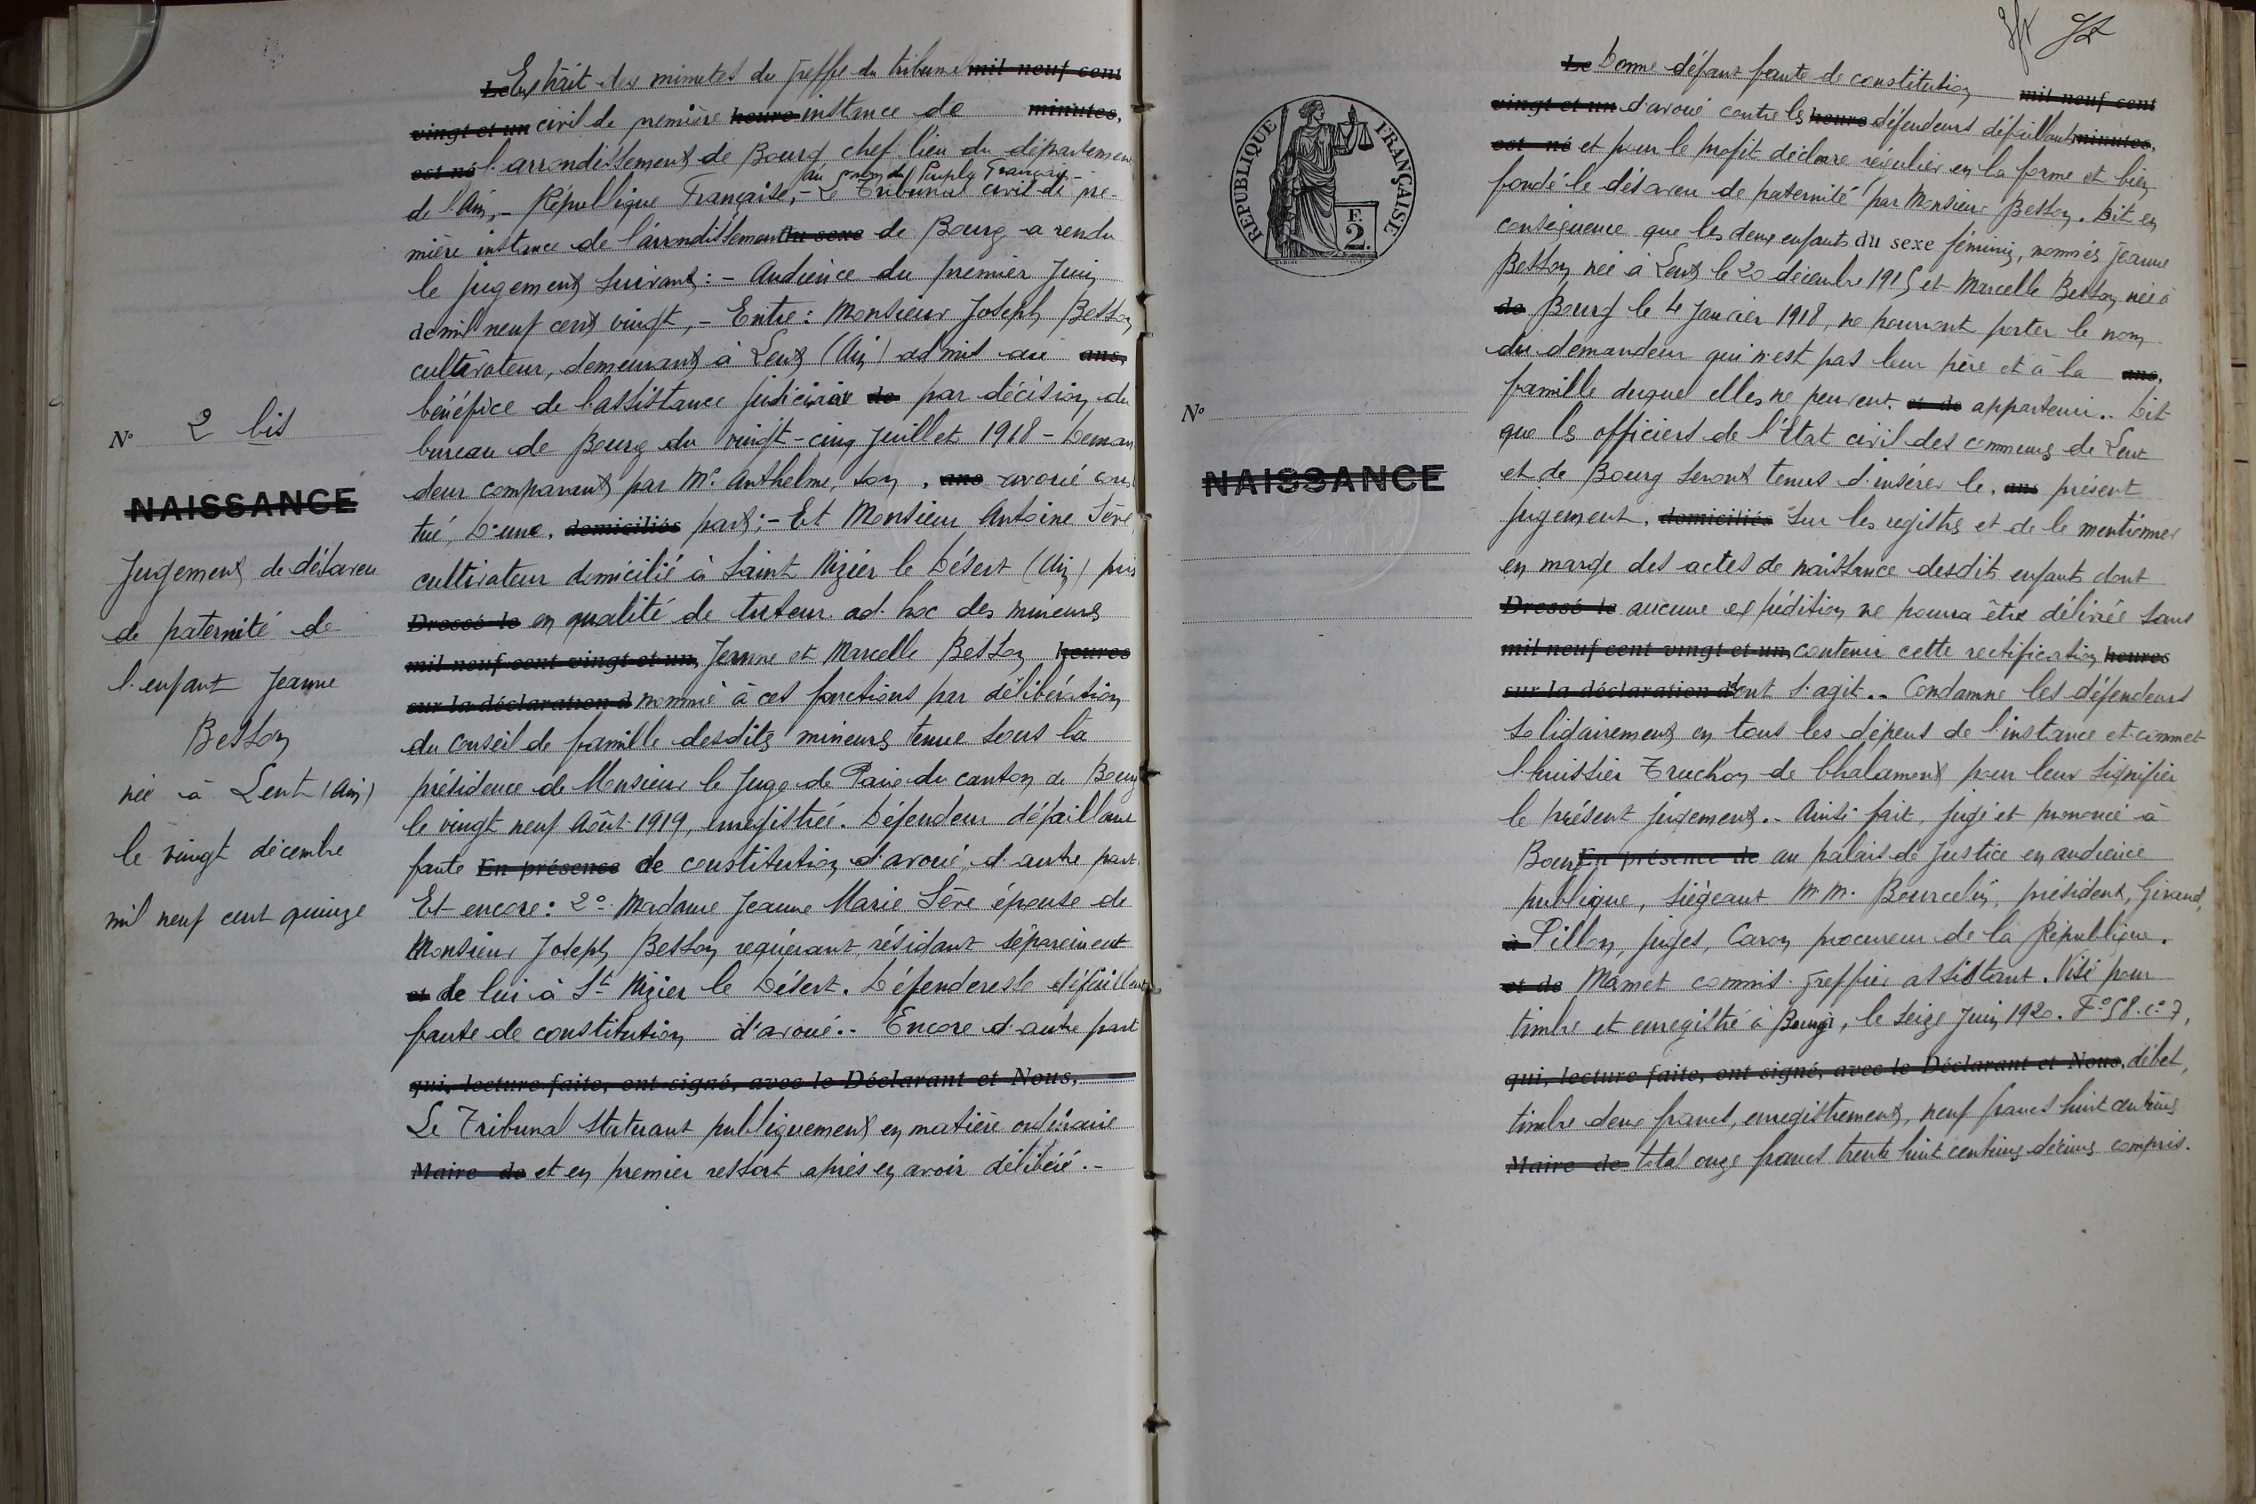 N° 2 bis
NAISSANCE
Jugement de désaveu
de paternité de
l'enfant Jeanne
Besson
née à Lent (Ain)
le vingt décembre
mil neuf cent quinze
Le Extrait des minutes du greffe du tribunal mil neuf cent
vingt et un civil de première heure instance de minutes,
est né l'arrondissement de Bourg chef lieu du département
au nom du Peuple Français -
de l'Ain, - République Française, - Le Tribunal civil de pre-
mière instance de l'arrondissement du sexe de Bourg a rendu
le jugement suivant : - Audience du premier Juin
de mil neuf cent vingt, - Entre : Monsieur Joseph Besson
cultivateur, demeurant à Lent (Ain) admis au ans,
bénéfice de l'assistance judiciaire de par décision du
bureau de Bourg du vingt-cinq Juillet 1918 - Deman
deur comparant par Me Anthelme, son, ans avoué cons
tué, D'une, domiciliés part ; - Et Monsieur Antoine Sève
cultivateur domicilié à Saint Nizier le Désert (Ain) pris
Dressé le en qualité de tuteur ad. hoc des mineurs
mil neuf cent vingt et un, Jeanne et Marcelle Besson heures
sur la déclaration d nommé à ces fonctions par délibération
du conseil de famille desdits mineurs tenue sous la
présidence de Monsieur le Juge de Paix du canton de Bourg
le vingt neuf Août 1919, enregistrée. Défendeur défaillant
faute En présence de constitution d'avoué, d'autre part.
Et encore : 2° Madame Jeanne Marie Sève épouse de
Monsieur Joseph Besson requérant, résidant séparément
et de lui à St Nizier le Désert. Défenderesse défaillante
faute de constitution d'avoué.. Encore d'autre part
qui, lecture faite, ont signé, avec le Déclarant et Nous,
Le Tribunal statuant publiquement en matière ordinaire
Maire de et en premier ressort après en avoir délibéré. -
REPUBLIQUE FRANÇAISE
F.
2.
N°
NAISSANCE
Le Donne défaut faute de constitution mil neuf cent
vingt et un d'avoué contre les heure défendeurs défaillants minutes,
est né et pour le profit déclare régulier en la forme et bien
fondé le désaveu de paternité par Monsieur Besson. Dit en
conséquence que les deux enfants du sexe féminin, nommés Jeanne
Besson née à Lent le 20 décembre 1915 et Marcelle Besson née à
de Bourg le 4 Janvier 1918, ne pourront porter le nom
du demandeur qui n'est pas leur père et à la ans,
famille duquel elles ne peuvent et de appartenir.. Dit
que les officiers de l'Etat civil des communes de Lent
et de Bourg seront tenus d'insérer le, ans présent
jugement, domiciliés sur les registres et de le mentionner
en marge des actes de naissance desdits enfants dont
Dressé le aucune expédition ne pourra être délivrée sans
mil neuf cent vingt et un, contenir cette rectification heures
sur la déclaration d dont s'agit.. Condamne les défendeurs
solidairement en tous les dépens de l'instance et commet
l'huissier Truchon de Chalamont pour leur signifier
le présent jugement.. Ainsi fait, jugé et prononcé à
Bourg En présence de au palais de Justice en audience
publique, siégeant M.M. Bourcelin, président, Giraud,
à Pillon, juges, Caron procureur de la République.
et de Mamet commis-greffier assistant. Visé pour
timbre et enregistré à Bourg, le seize Juin 1920. F° 58. c° 7,
qui, lecture faite, ont signé, avec le Déclarant et Nous, débet,
timbre deux francs, enregistrement, neuf francs huit centimes
Maire de total onze francs trente huit centimes décimes compris.